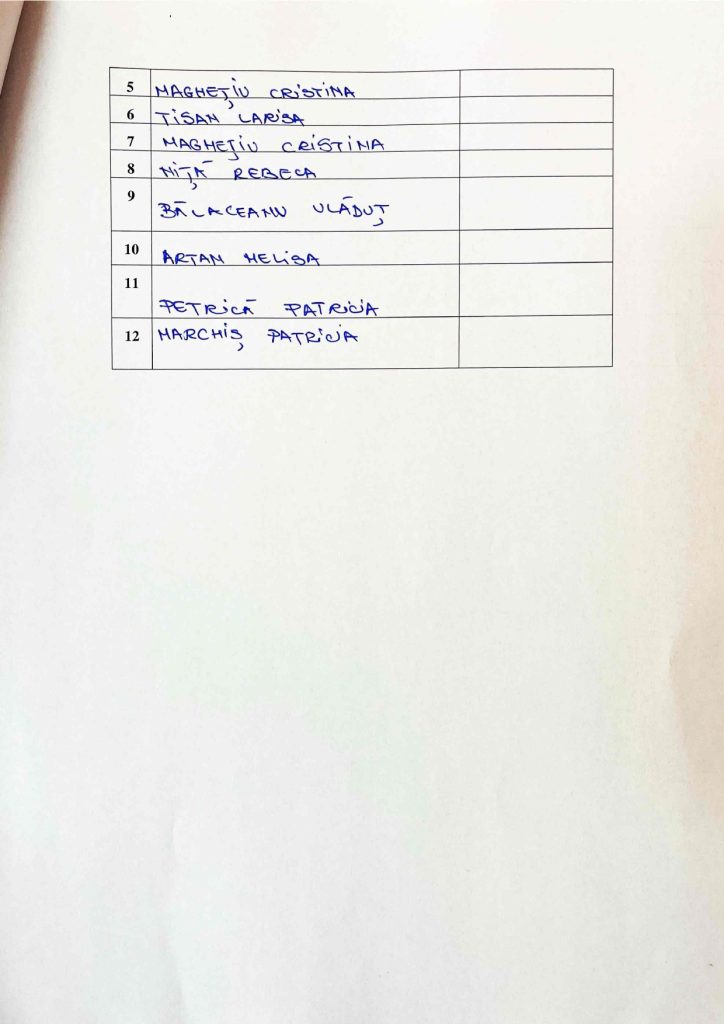 5 MAGHEȚIU CRISTINA
6 TISAN LARISA
7 MAGHEȚIU CRISTINA
8 NIȚĂ REBECA
9 BĂLACEANU VLĂDUȚ
10 ARTAN MELISA
11 PETRICĂ PATRICIA
12 MARCHIȘ PATRICIA